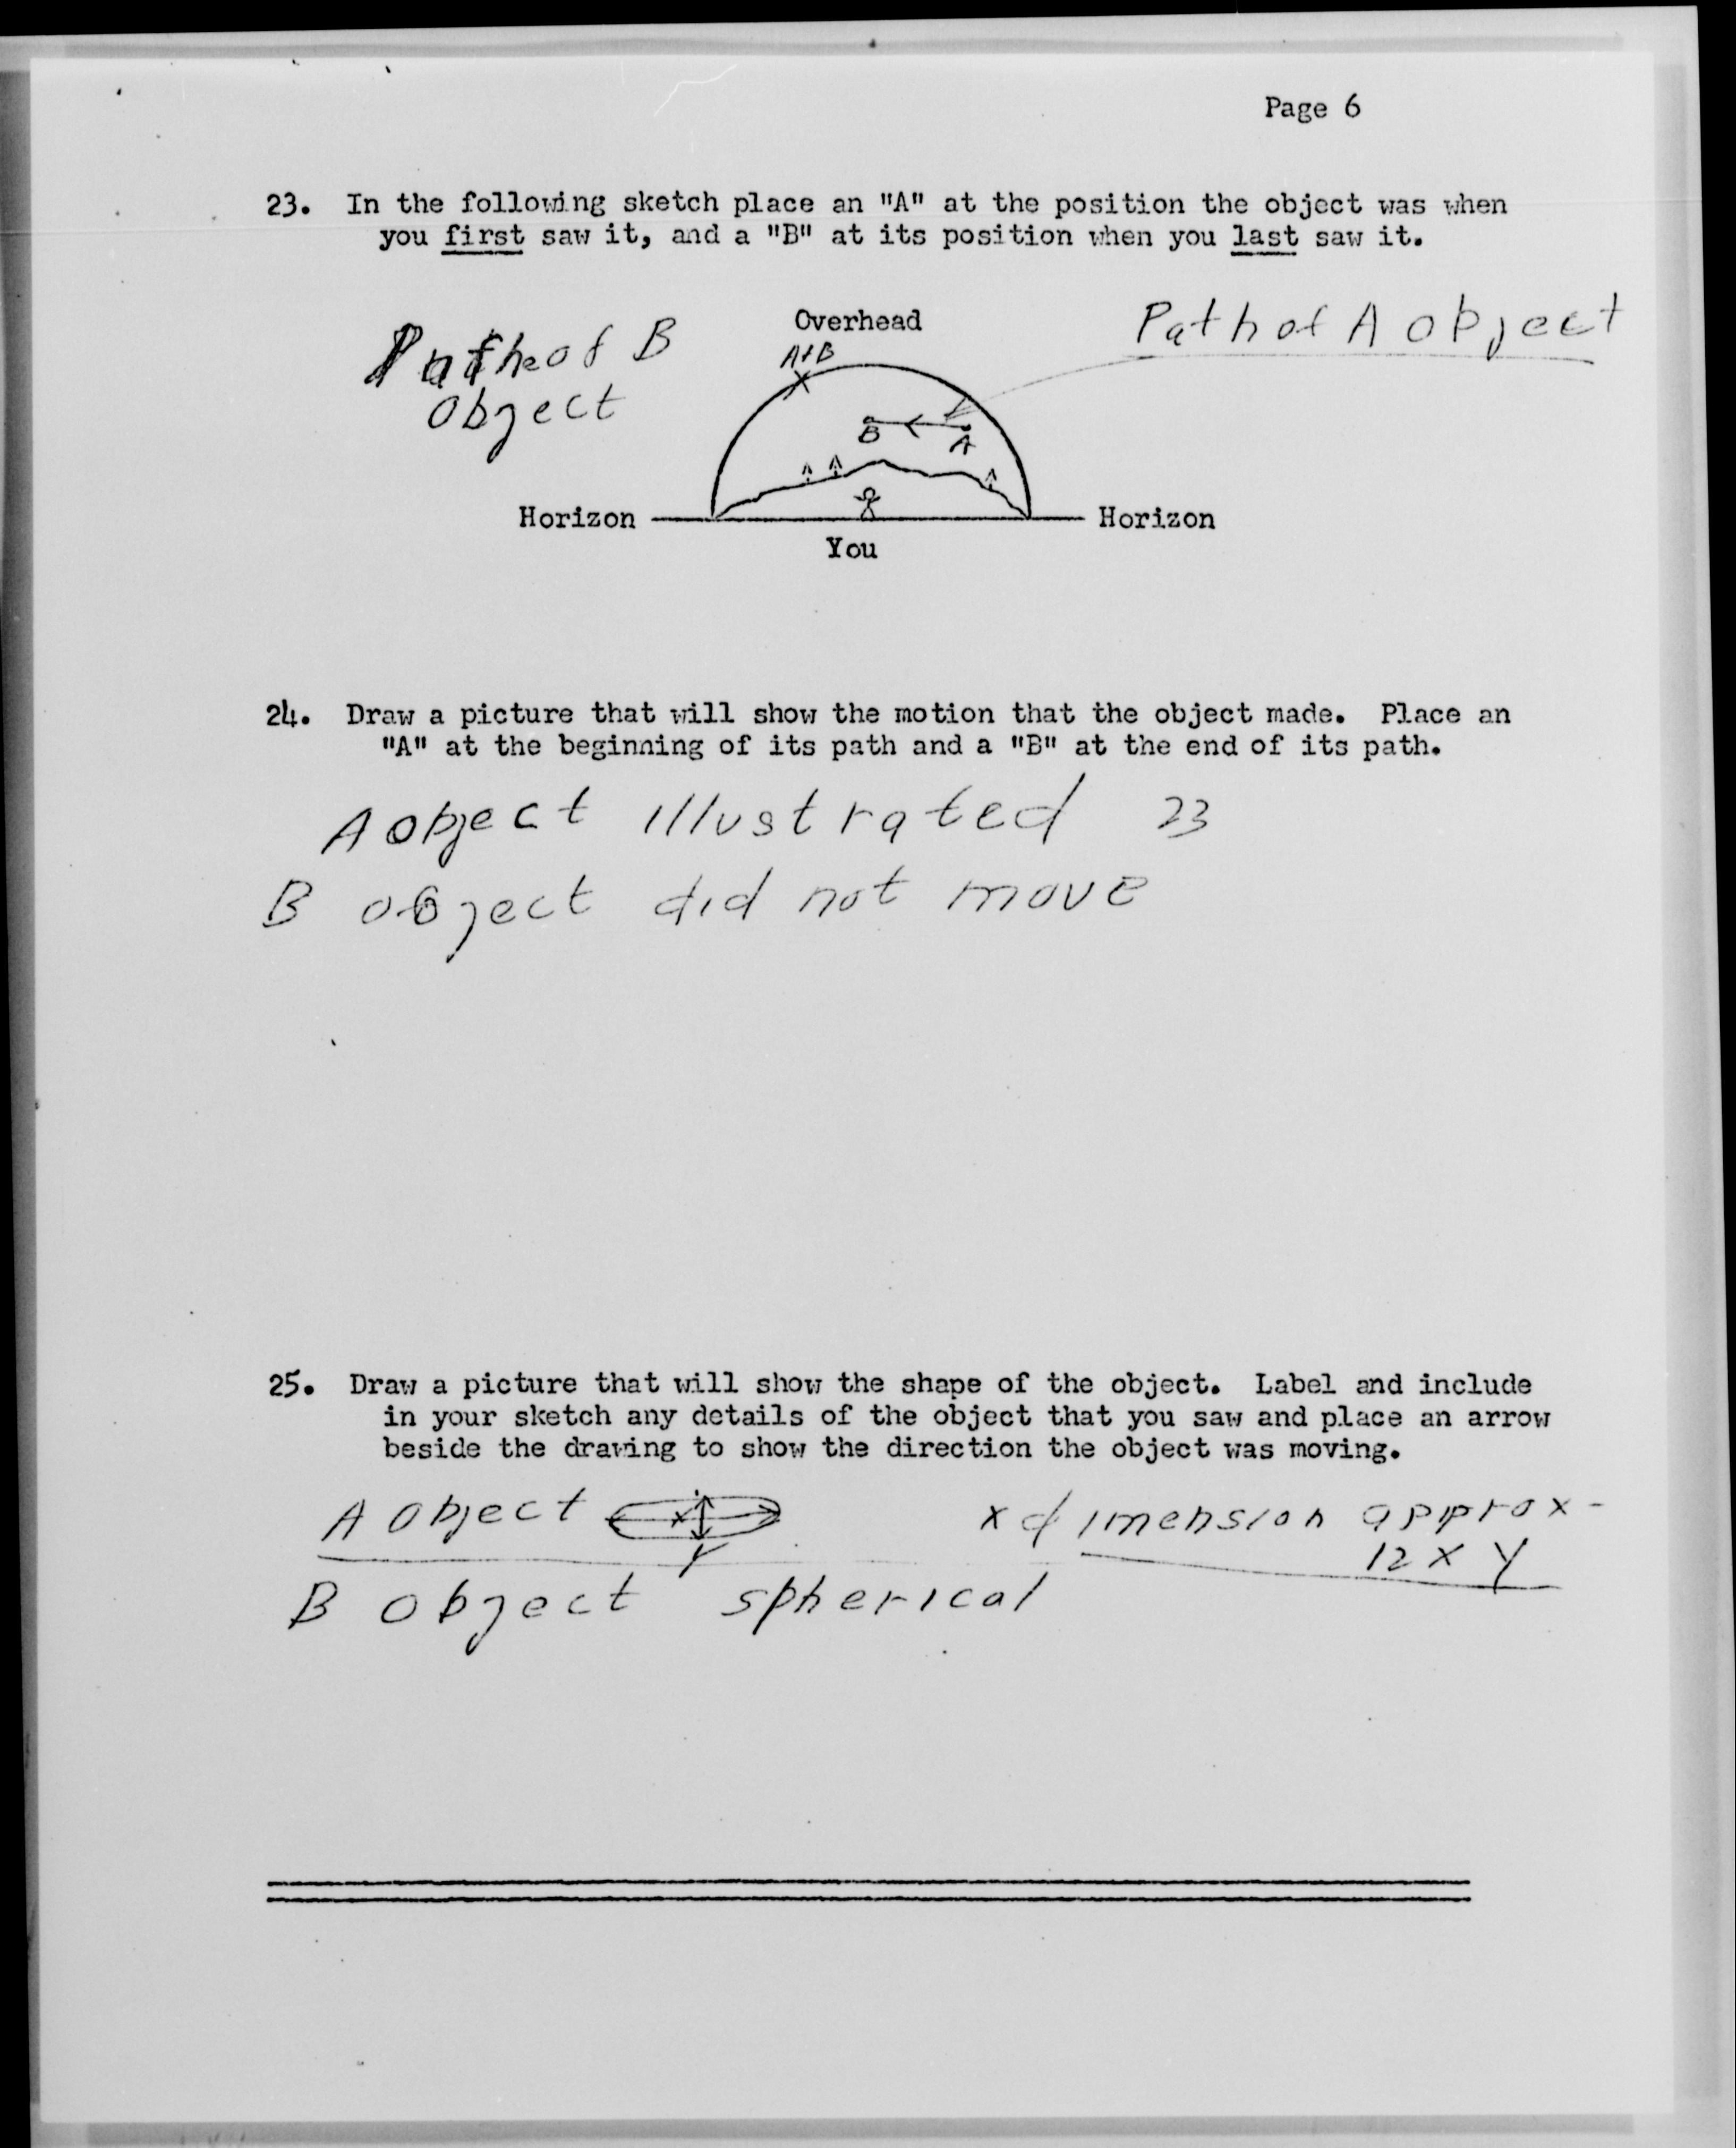 Page 6
23. In the following sketch place an "A" at the position the object was when
you first saw it, and a "B" at its position when you last saw it.
Path of B
Object
Overhead
A+B
X
Path of A object
B
A
Horizon
Horizon
You
24. Draw a picture that will show the motion that the object made. Place an
"A" at the beginning of its path and a "B" at the end of its path.
A object illustrated 23
B object did not move
25. Draw a picture that will show the shape of the object. Label and include
in your sketch any details of the object that you saw and place an arrow
beside the drawing to show the direction the object was moving.
A object
x
Y
x dimension approx-
12 x Y
B object spherical